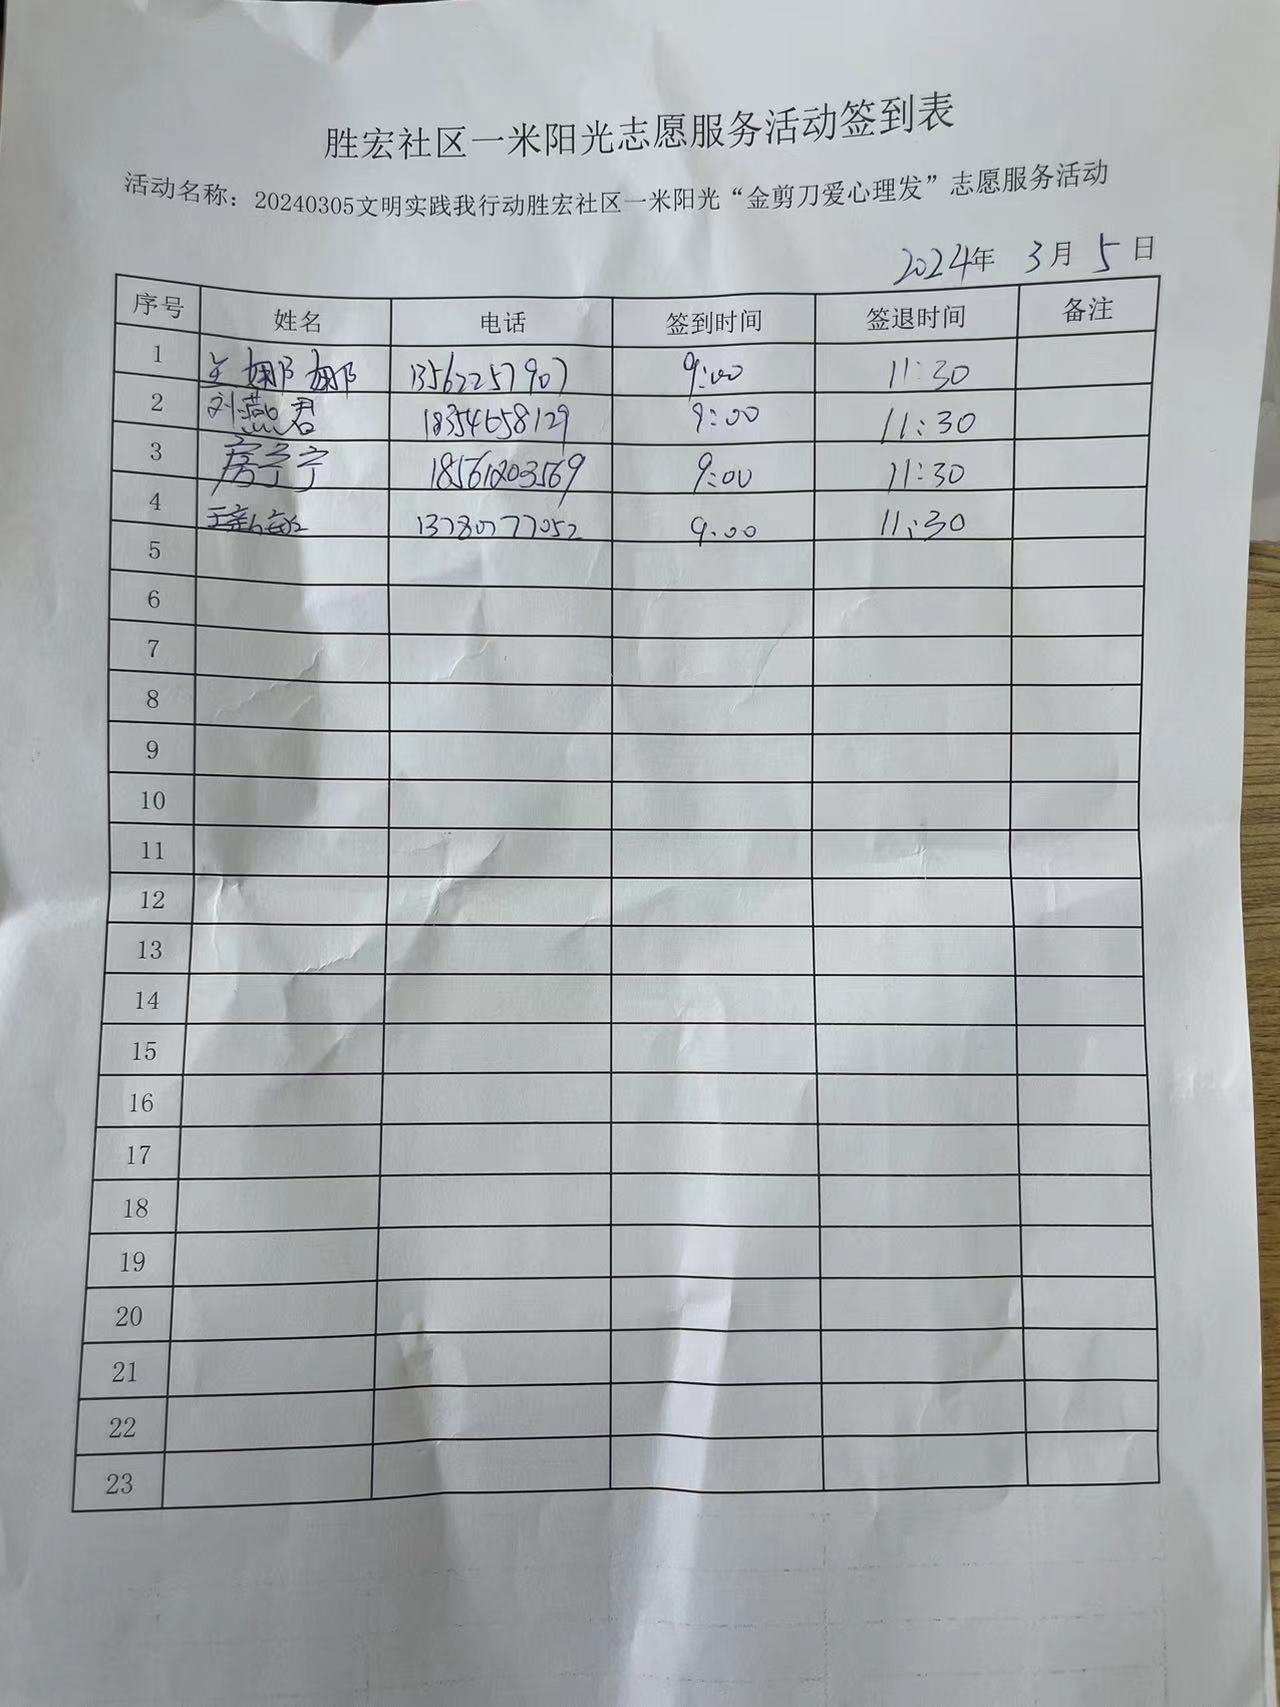 胜宏社区一米阳光志愿服务活动签到表
活动名称：20240305文明实践我行动胜宏社区一米阳光“金剪刀爱心理发”志愿服务活动
2024年 3月 5日
序号 姓名 电话 签到时间 签退时间 备注
1 娜娜 13562257907 9:00 11:30
2 刘燕君 18354658129 9:00 11:30
3 房宁宁 18561203569 9:00 11:30
4 13780777052 9:00 11:30
5
6
7
8
9
10
11
12
13
14
15
16
17
18
19
20
21
22
23